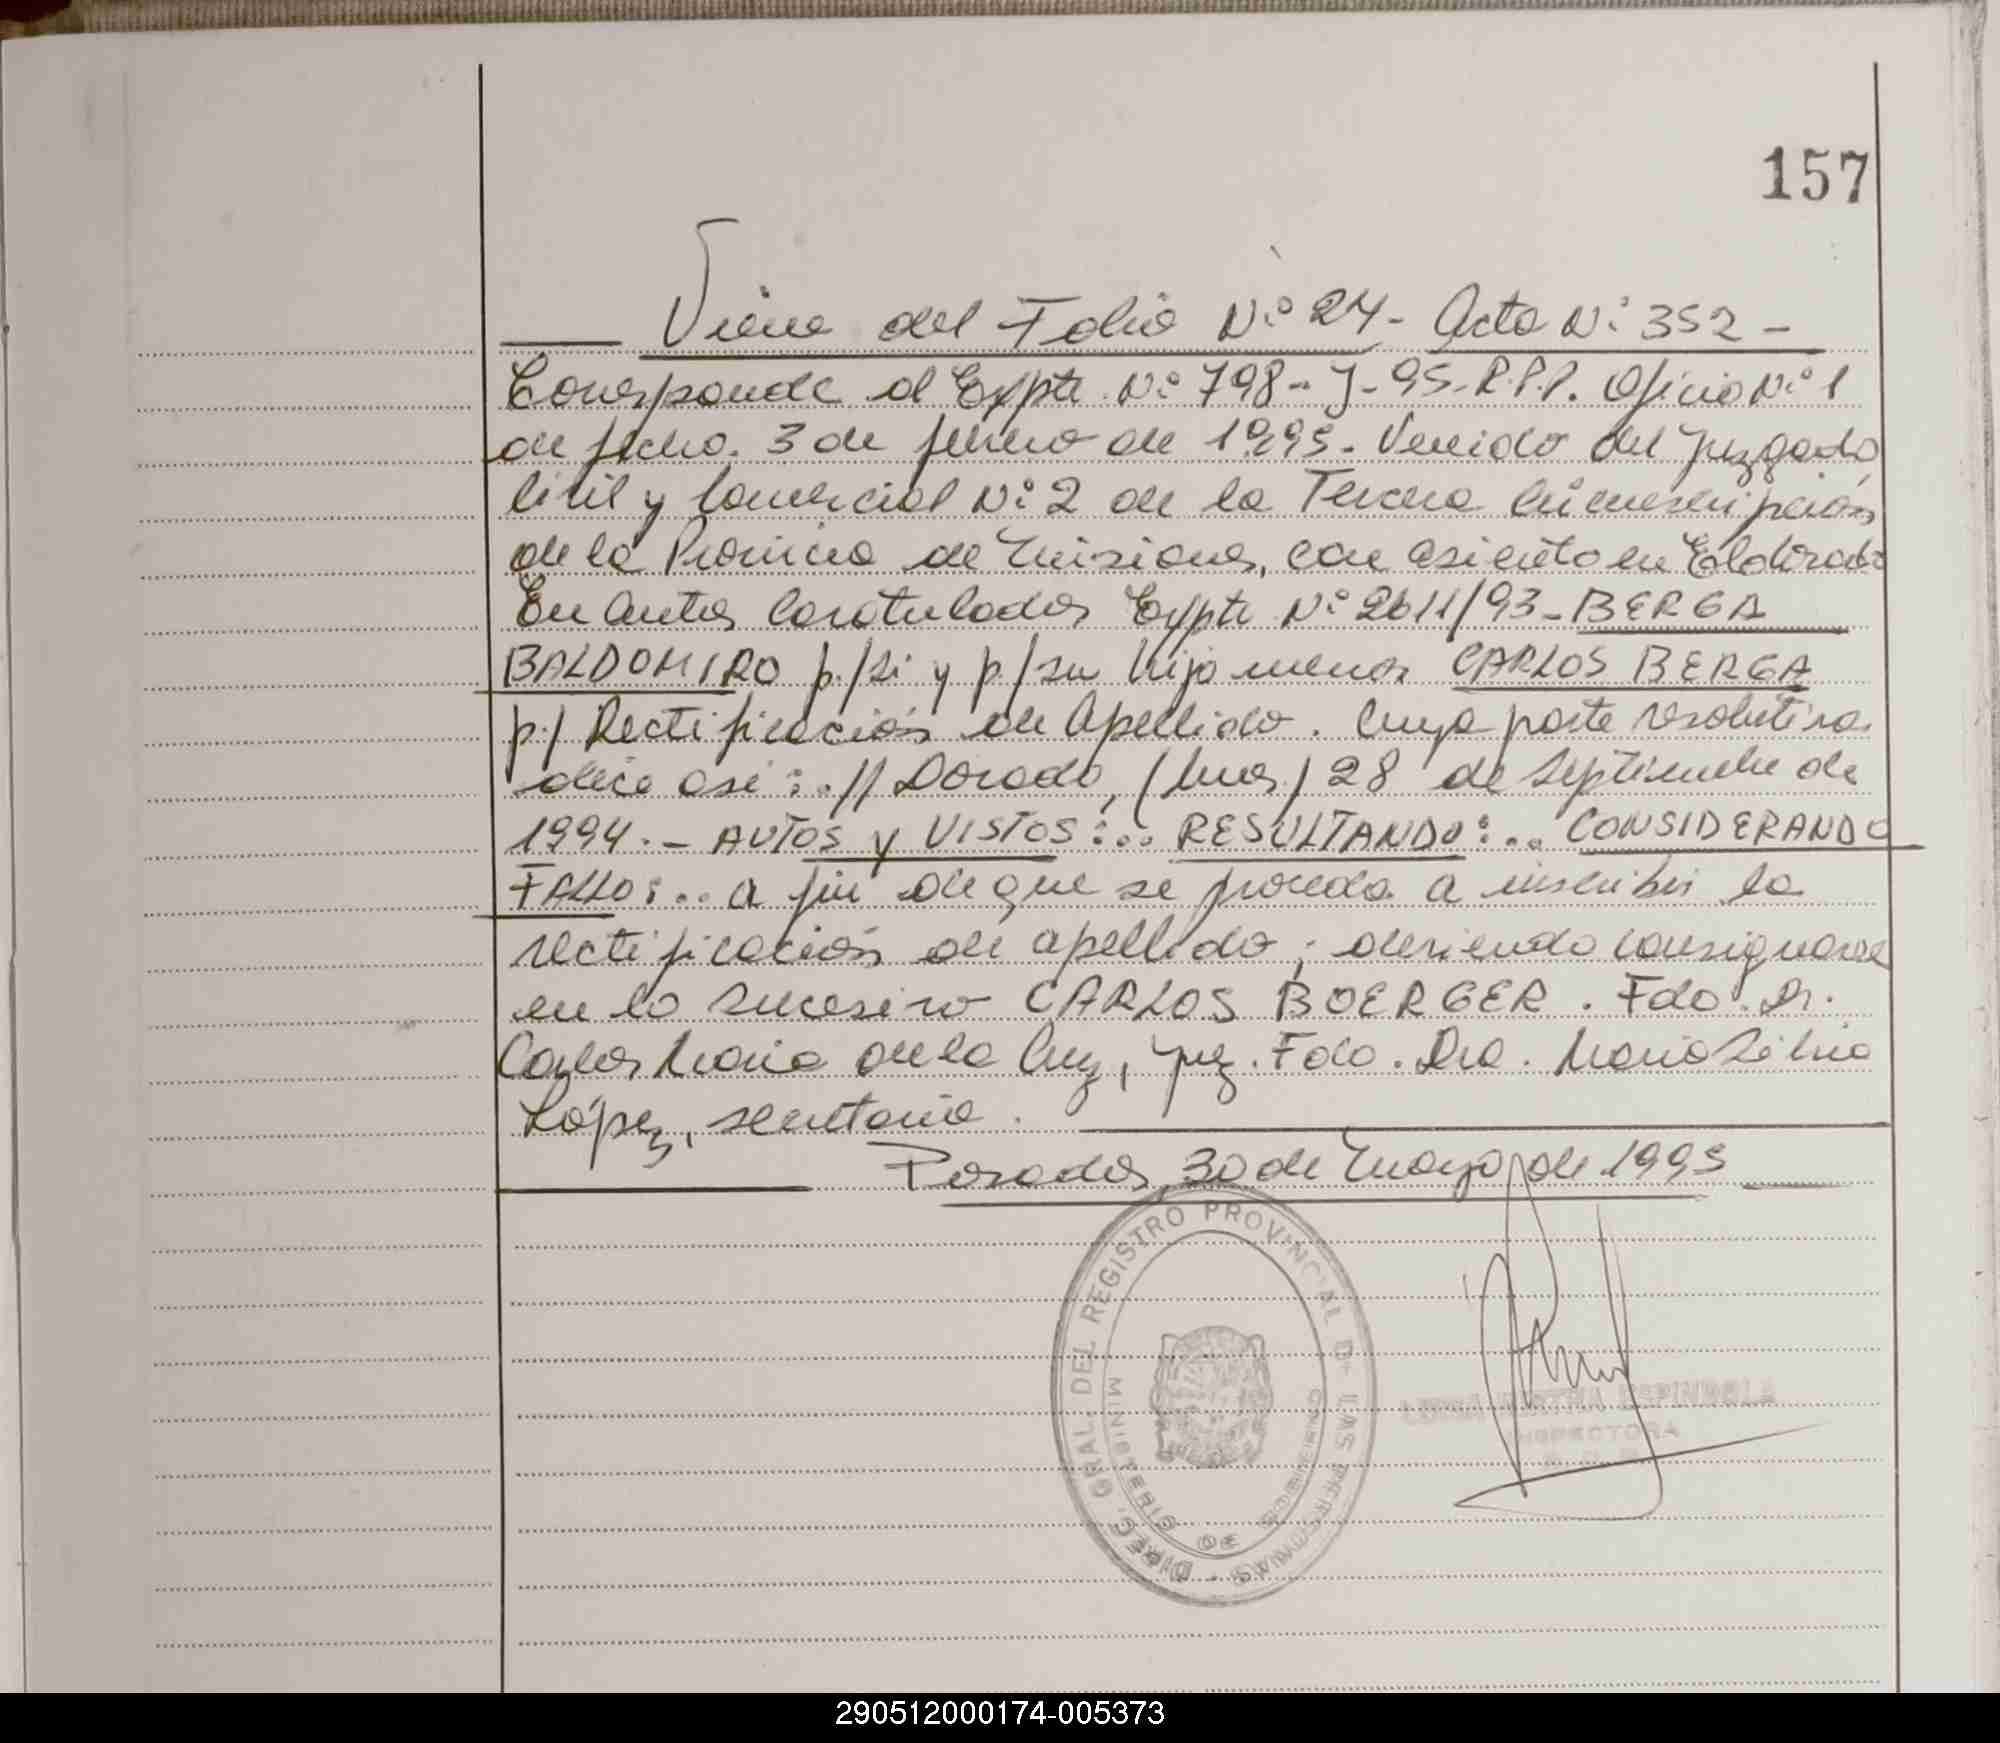 157
Viene del Folio Nº 24 - Acta Nº 352 -
Corresponde al Expte. Nº 798 - J - 95 - R.P.P. Oficio Nº 1
de fecha 3 de febrero de 1995 - Venido del Juzgado
Civil y Comercial Nº 2 de la Tercera Circunscripción
de la Provincia de Misiones, con asiento en Eldorado
En autos Caratulados Expte Nº 2611/93 - BERGA
BALDOMIRO p./si y p/su hijo menor CARLOS BERGA
p./ Rectificación de Apellido. Cuya parte resolutiva
dice así: ..// Dorado, (Mnes.) 28 de Septiembre de
1994. - AUTOS y VISTOS:... RESULTANDO:... CONSIDERANDO
FALLO:... a fin de que se proceda a inscribir la
rectificación de apellido; debiendo consignarse
en lo sucesivo CARLOS BOERGER. Fdo. Dr.
Carlos Maria de la Cruz, Juez. Fdo. Dra. Maria Silvia
López, secretaria.
Posadas, 30 de Mayo de 1995
DIREC. GRAL. DEL REGISTRO PROVINCIAL DE LAS PERSONAS
MINISTERIO DE GOBIERNO
MIRTHA ESPINDOLA
INSPECTORA
290512000174-005373